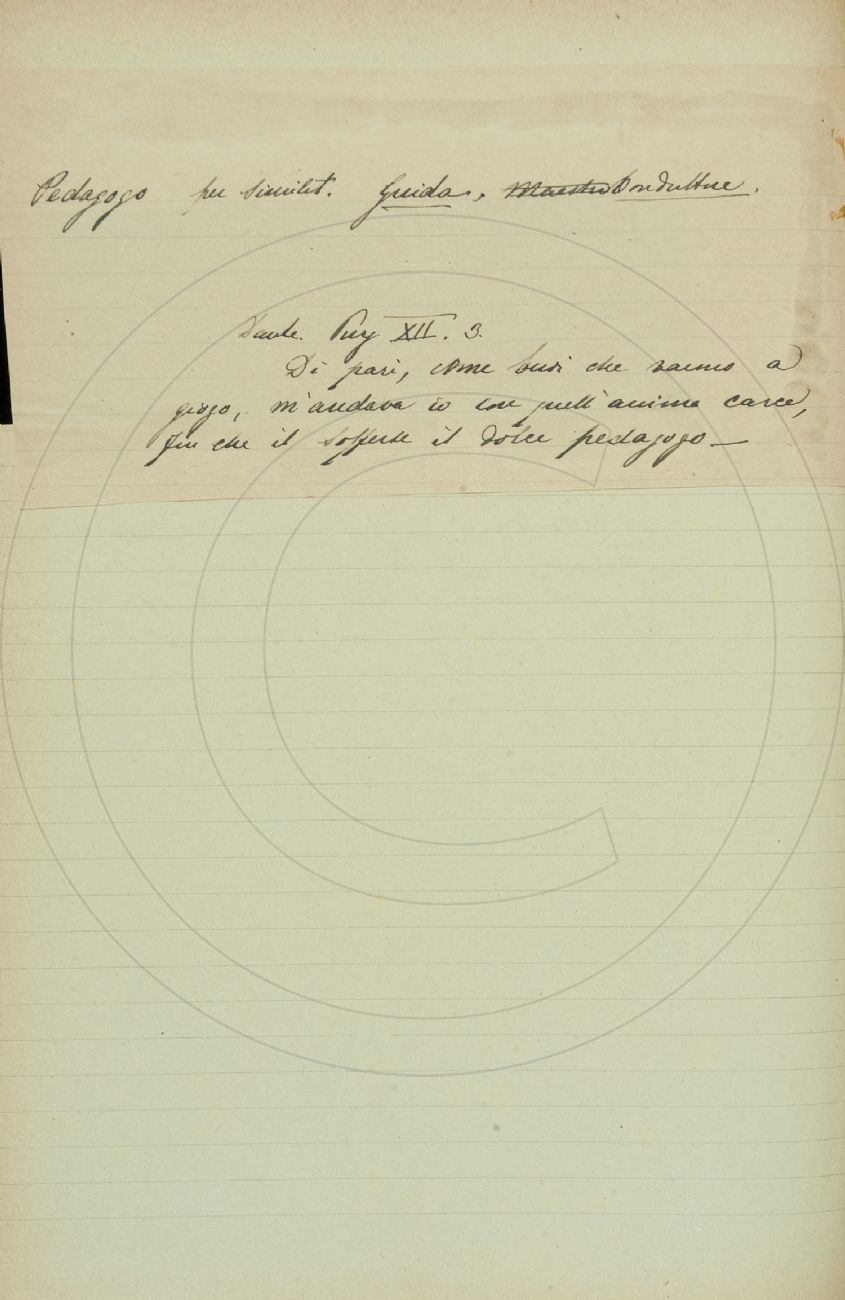 Pedagogo per similit. Guida, Maestro Conduttore.
Dante. Purg XII. 3.
Di pari, come buoi che vanno a
giogo, m'andava io con quell'anima carca,
fin che il sofferse il dolce pedagogo —